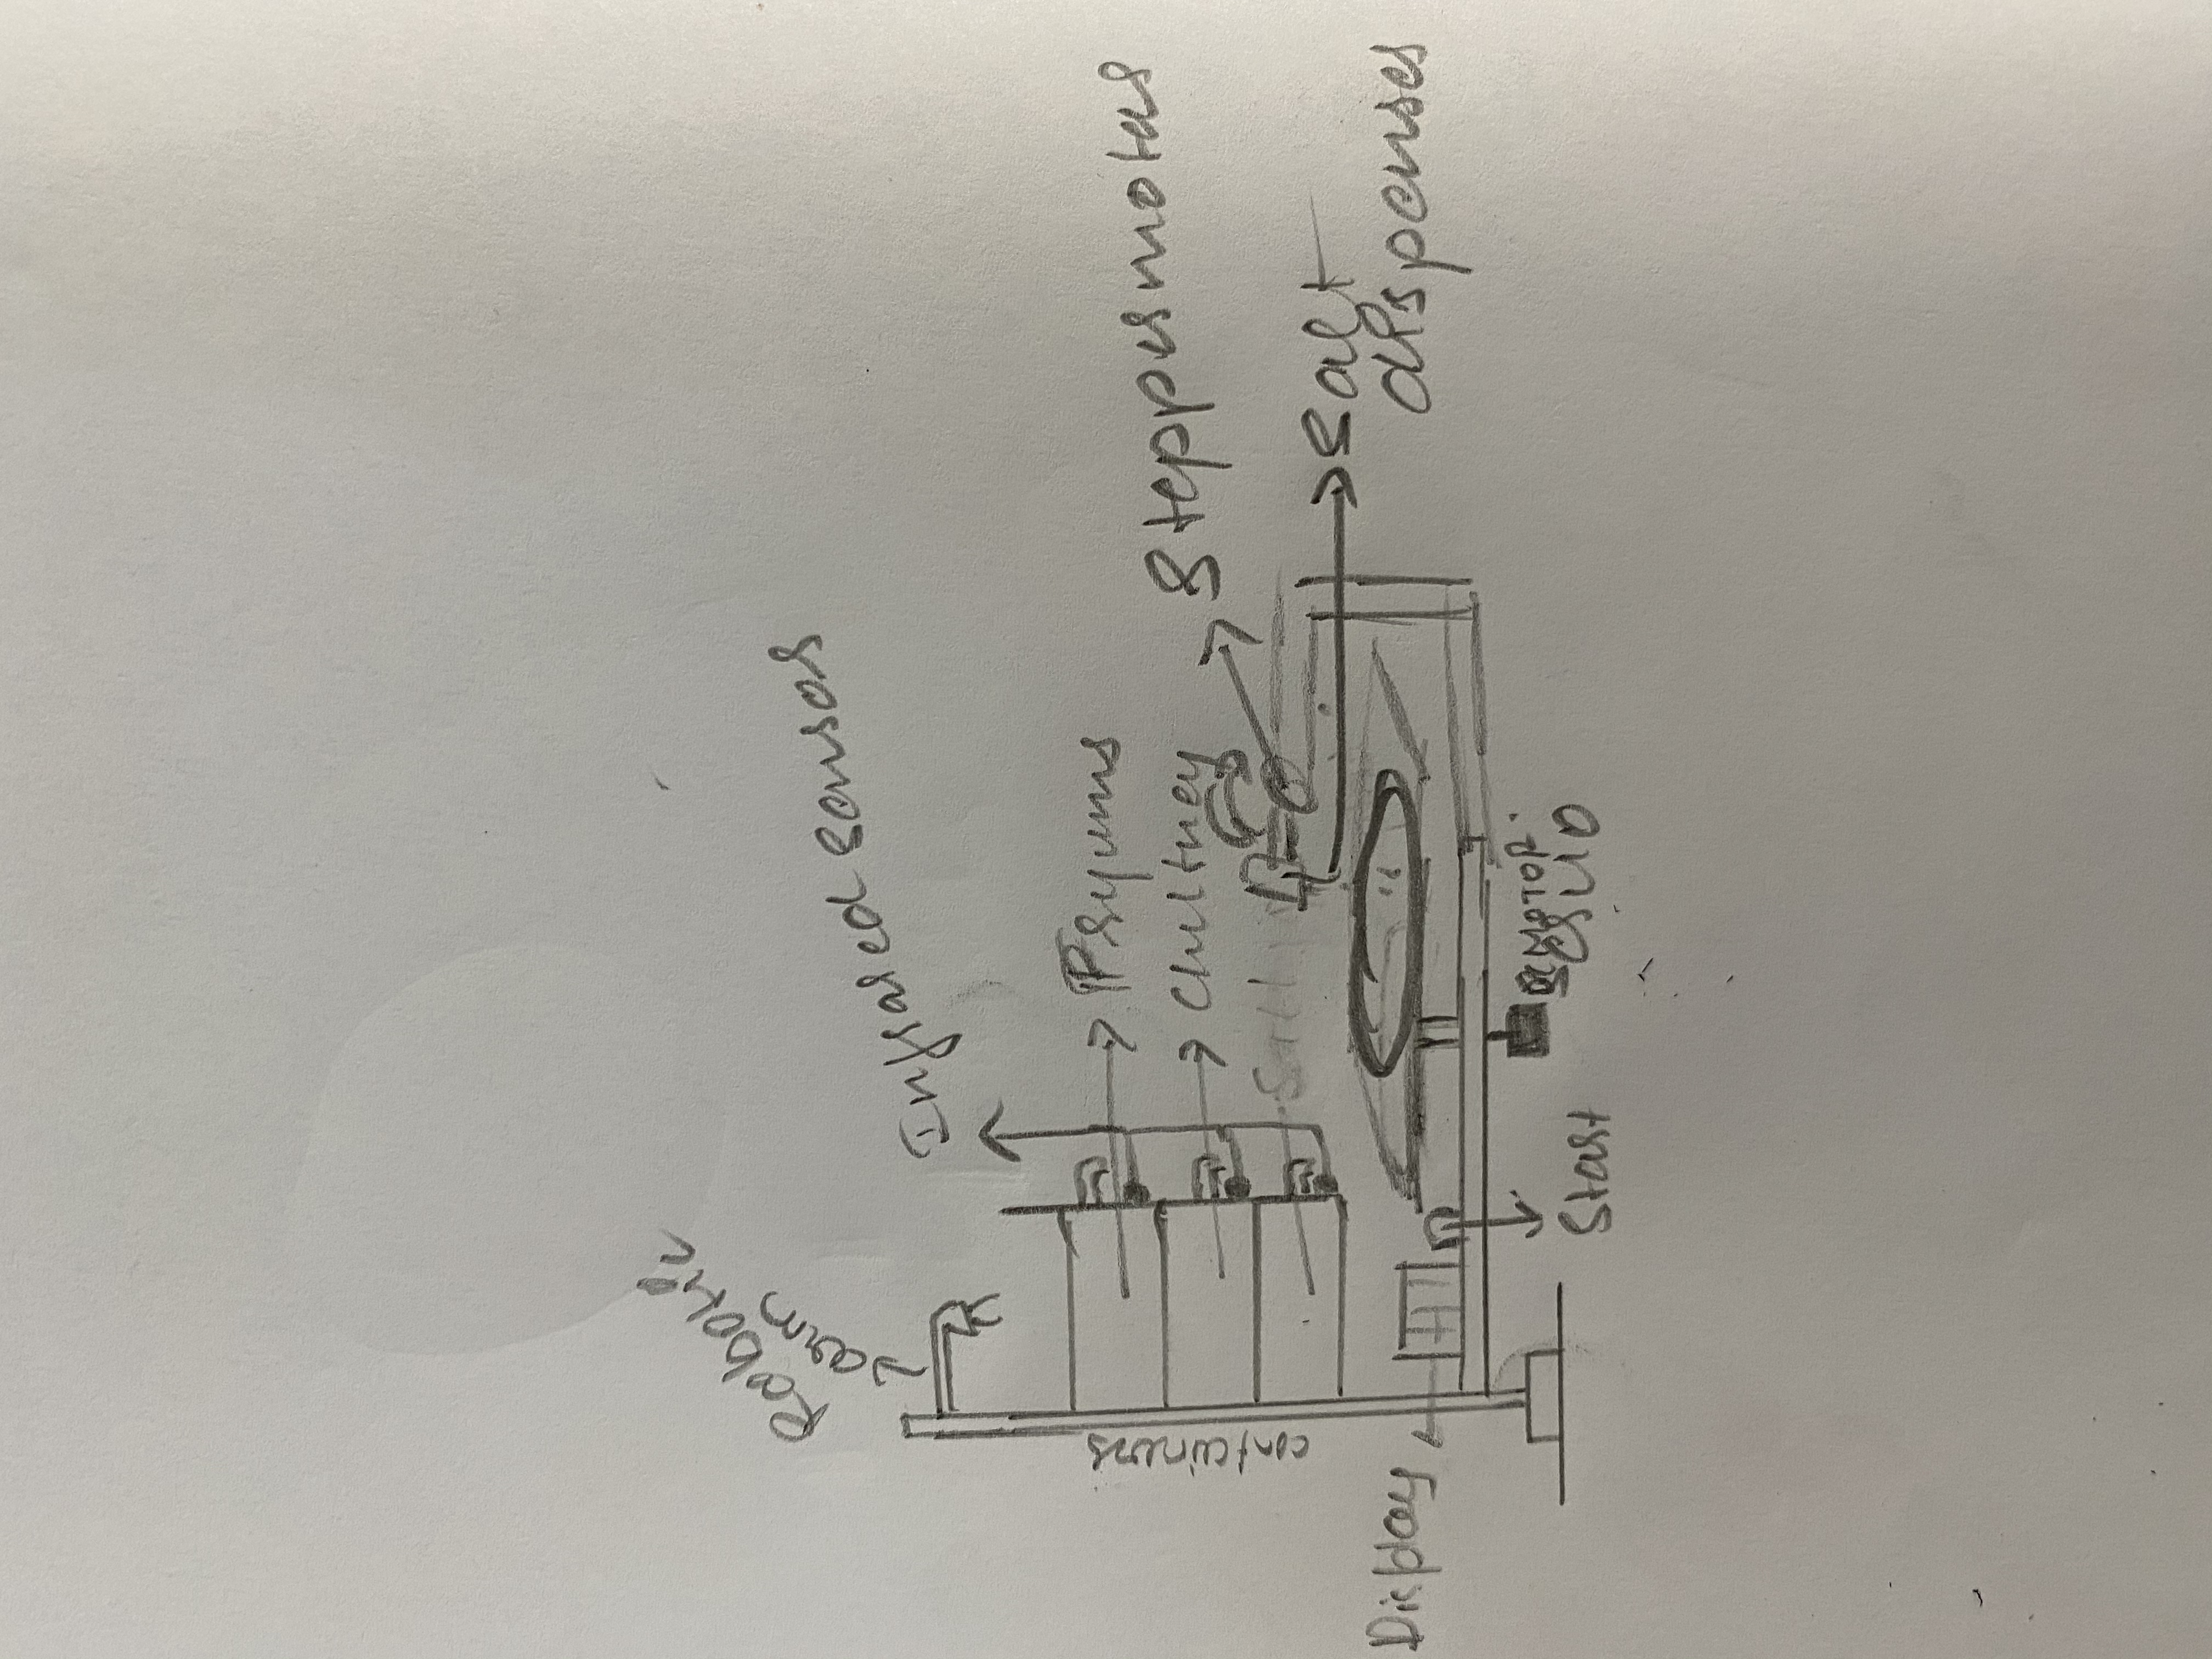 Robotic
arm
Infrared sensor
containers
Fryums
Chutney
Stepper motor
Salt
dispenser
Display
Start
MOTOR